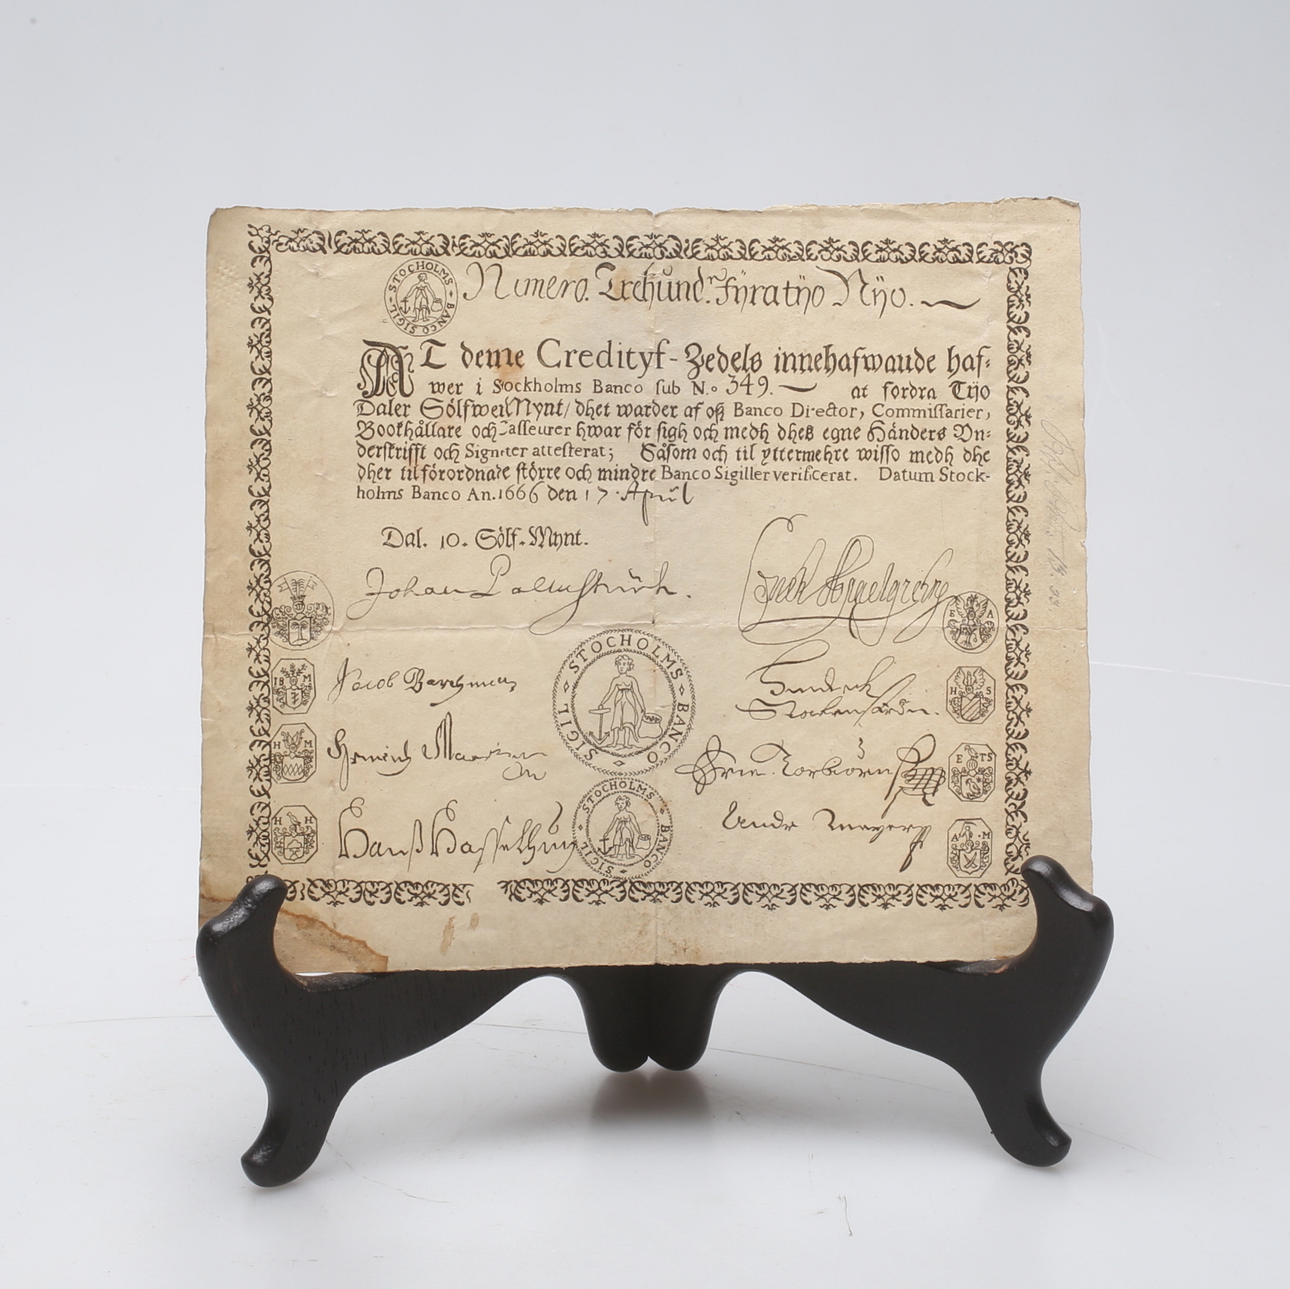 STOCHOLMS BANCO SIGIL
Numero. Trehund. Fÿratÿo Nÿo.
AT denne Credityf-Zedels innehafwande haf-
wer i Stockholms Banco sub N.o 349. at fordra Tijo
Daler Sölfwer Mynt/ dhet warder af oß Banco Director, Commissarier,
Bookhållare och Casseurer hwar för sigh och medh dheß egne Händers Vn-
derskrifft och Signeter attesterat; Såsom och til yttermehre wisso medh dhe
dher til förordnade större och mindre Banco Sigiller verificerat. Datum Stock-
holms Banco An. 1666 den 17 April
Dal. 10. Sölf-Mynt.
Johan Palmstruch.
E A
STOCHOLMS BANCO SIGIL
IB M
Jacob Barchman
Hindrich
H S
H M
Henrich
E TS
STOCHOLMS BANCO SIGIL
H H
Hanß
Andr Meyer
A M